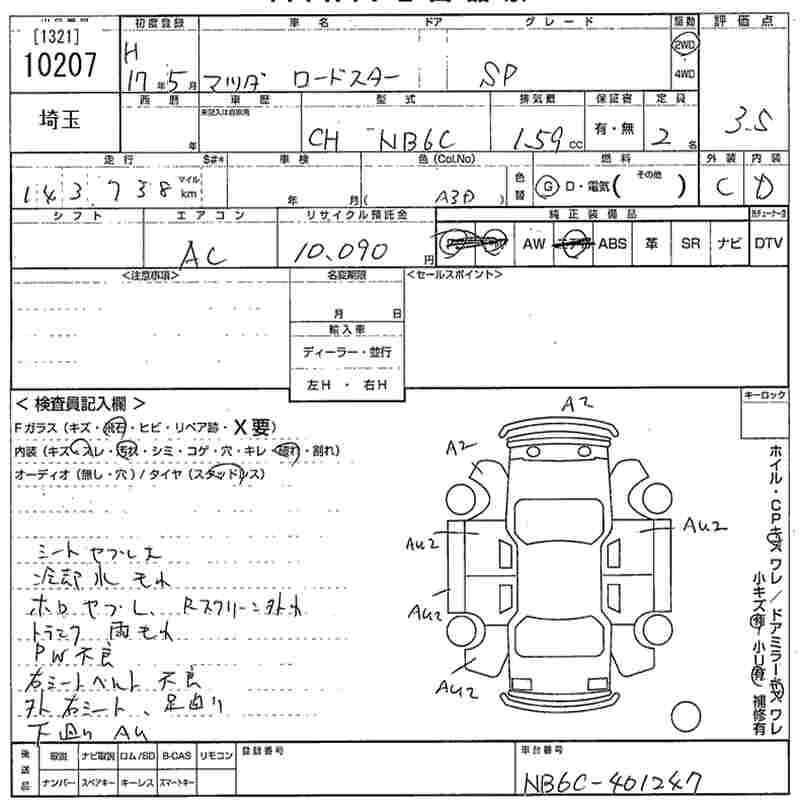 [1321]
10207
初度登録 車名 ドア グレード 駆動 評価点
H 17年5月 マツダ ロードスター SP 2WD
4WD
3.5
埼玉
西暦 車歴 型式 排気量 保証書 定員
年 未記入は自家用 CH NB6C 1.59 cc 有・無 2名
走行 S#* 車検 色(Col.No) 燃料 外装 内装
143,738 マイル km 年 月 ( A3P ) 色替 G D・電気( その他 ) C D
シフト エアコン リサイクル預託金 純正装備品
AC 10,090円 AW ABS 革 SR ナビ DTV
<注意事項> 名変期限 <セールスポイント>
月 日
輸入車
ディーラー・並行
左H ・ 右H
<検査員記入欄>
Fガラス(キズ・飛石・ヒビ・リペア跡・X要)
内装(キズ・スレ・汚れ・シミ・コゲ・穴・キレ・破れ・割れ)
オーディオ(無し・穴)/タイヤ(スタッドレス)
シートヤブレ大
冷却水モレ
ホロヤブレ、Rスクリーン外れ
トランク雨モレ
PW不良
右シートベルト不良
外右シート、足廻り
下廻りAU
A2
A2
AU2
AU2
AU2
AU2
キーロック
ホイル・CPキズワレ/ドアミラーキズワレ
小キズ有 小U有 補修有
後送品 取説 ナビ取説 ロム/SD B-CAS リモコン 登録番号 車台番号
ナンバー スペアキー キーレス スマートキー NB6C-401247